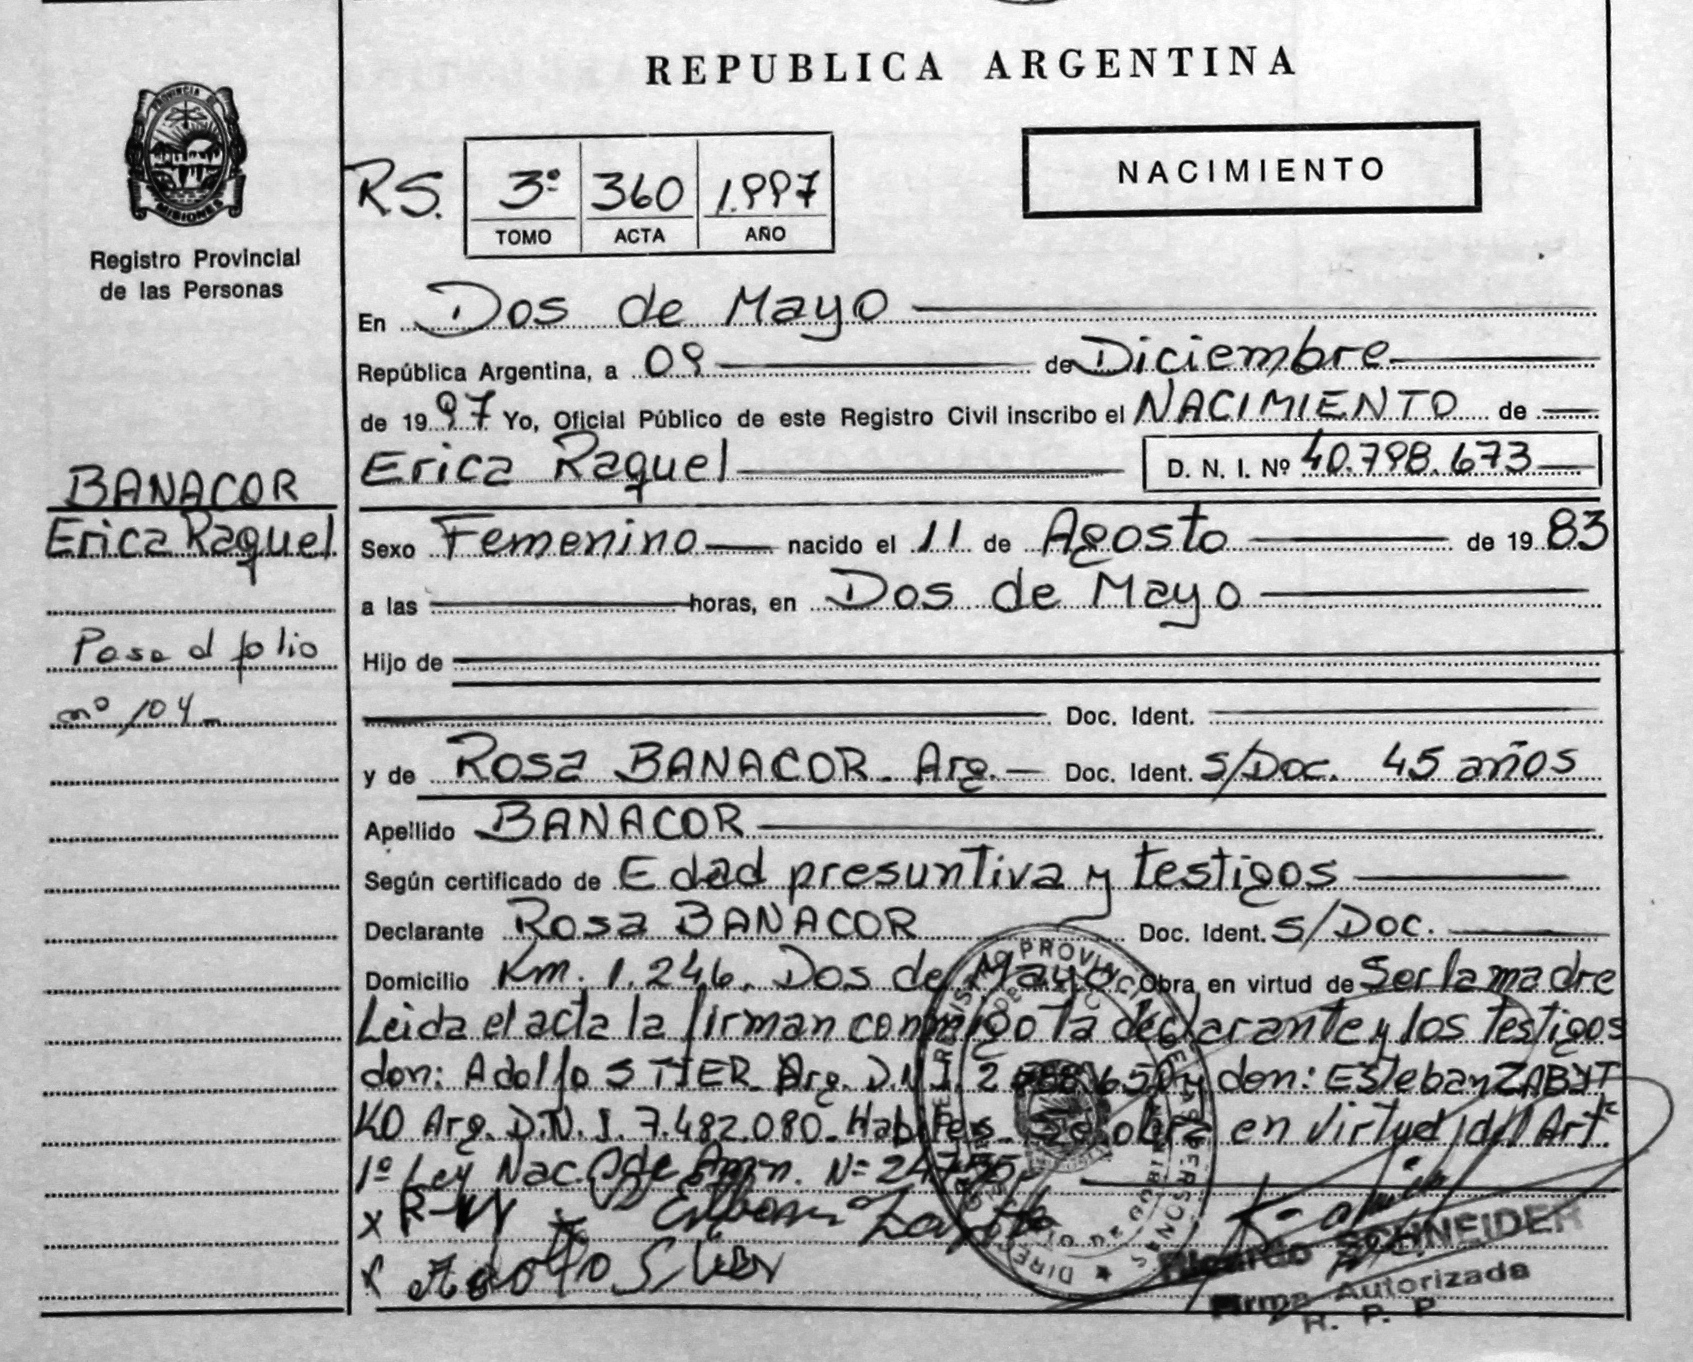 PROVINCIA DE
MISIONES
Registro Provincial
de las Personas
BANACOR
Erica Raquel
Pasa al folio
nº 104
REPUBLICA ARGENTINA
NACIMIENTO
RS. 3º 360 1.997
TOMO ACTA AÑO
En Dos de Mayo
República Argentina, a 09 de Diciembre
de 1997 Yo, Oficial Público de este Registro Civil inscribo el NACIMIENTO de
Erica Raquel D. N. I. Nº 40.798.673
Sexo Femenino nacido el 11 de Agosto de 1983
a las horas, en Dos de Mayo
Hijo de
Doc. Ident.
y de Rosa BANACOR. Arg. Doc. Ident. S/Doc. 45 años
Apellido BANACOR
Según certificado de Edad presuntiva y testigos
Declarante Rosa BANACOR Doc. Ident. S/Doc.
Domicilio Km. 1.246. Dos de Mayo Obra en virtud de Ser la madre
Leida el acta la firman conmigo la declarante y los testigos
don: Adolfo STIER Arg. D.N.I. y don: Esteban ZABYT
KO Arg. D.N.I. 7.482.080. Habiles. Se obra en virtud del Artº
1º Ley Nac. Nº 24.755
x
x Adolfo Stier
Ricardo SCHNEIDER
Firma Autorizada
R. P. P.